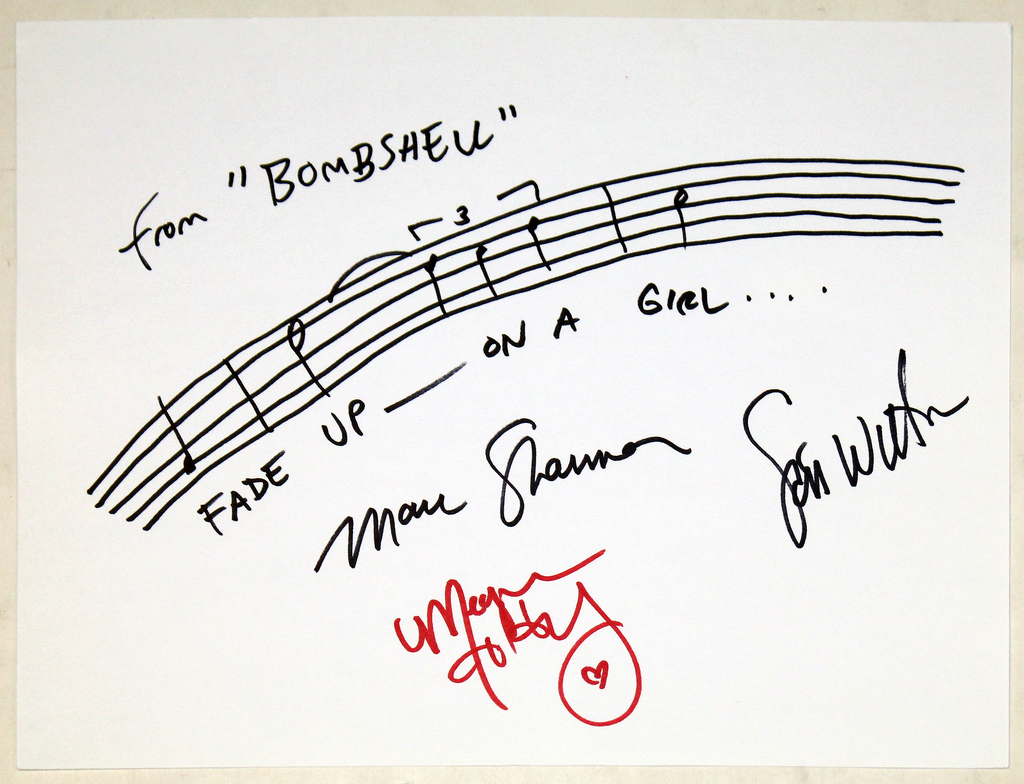 from "BOMBSHELL"
3
FADE UP ___ ON A GIRL.....
Marc Shaiman
Scott Wittman
Megan Hilty